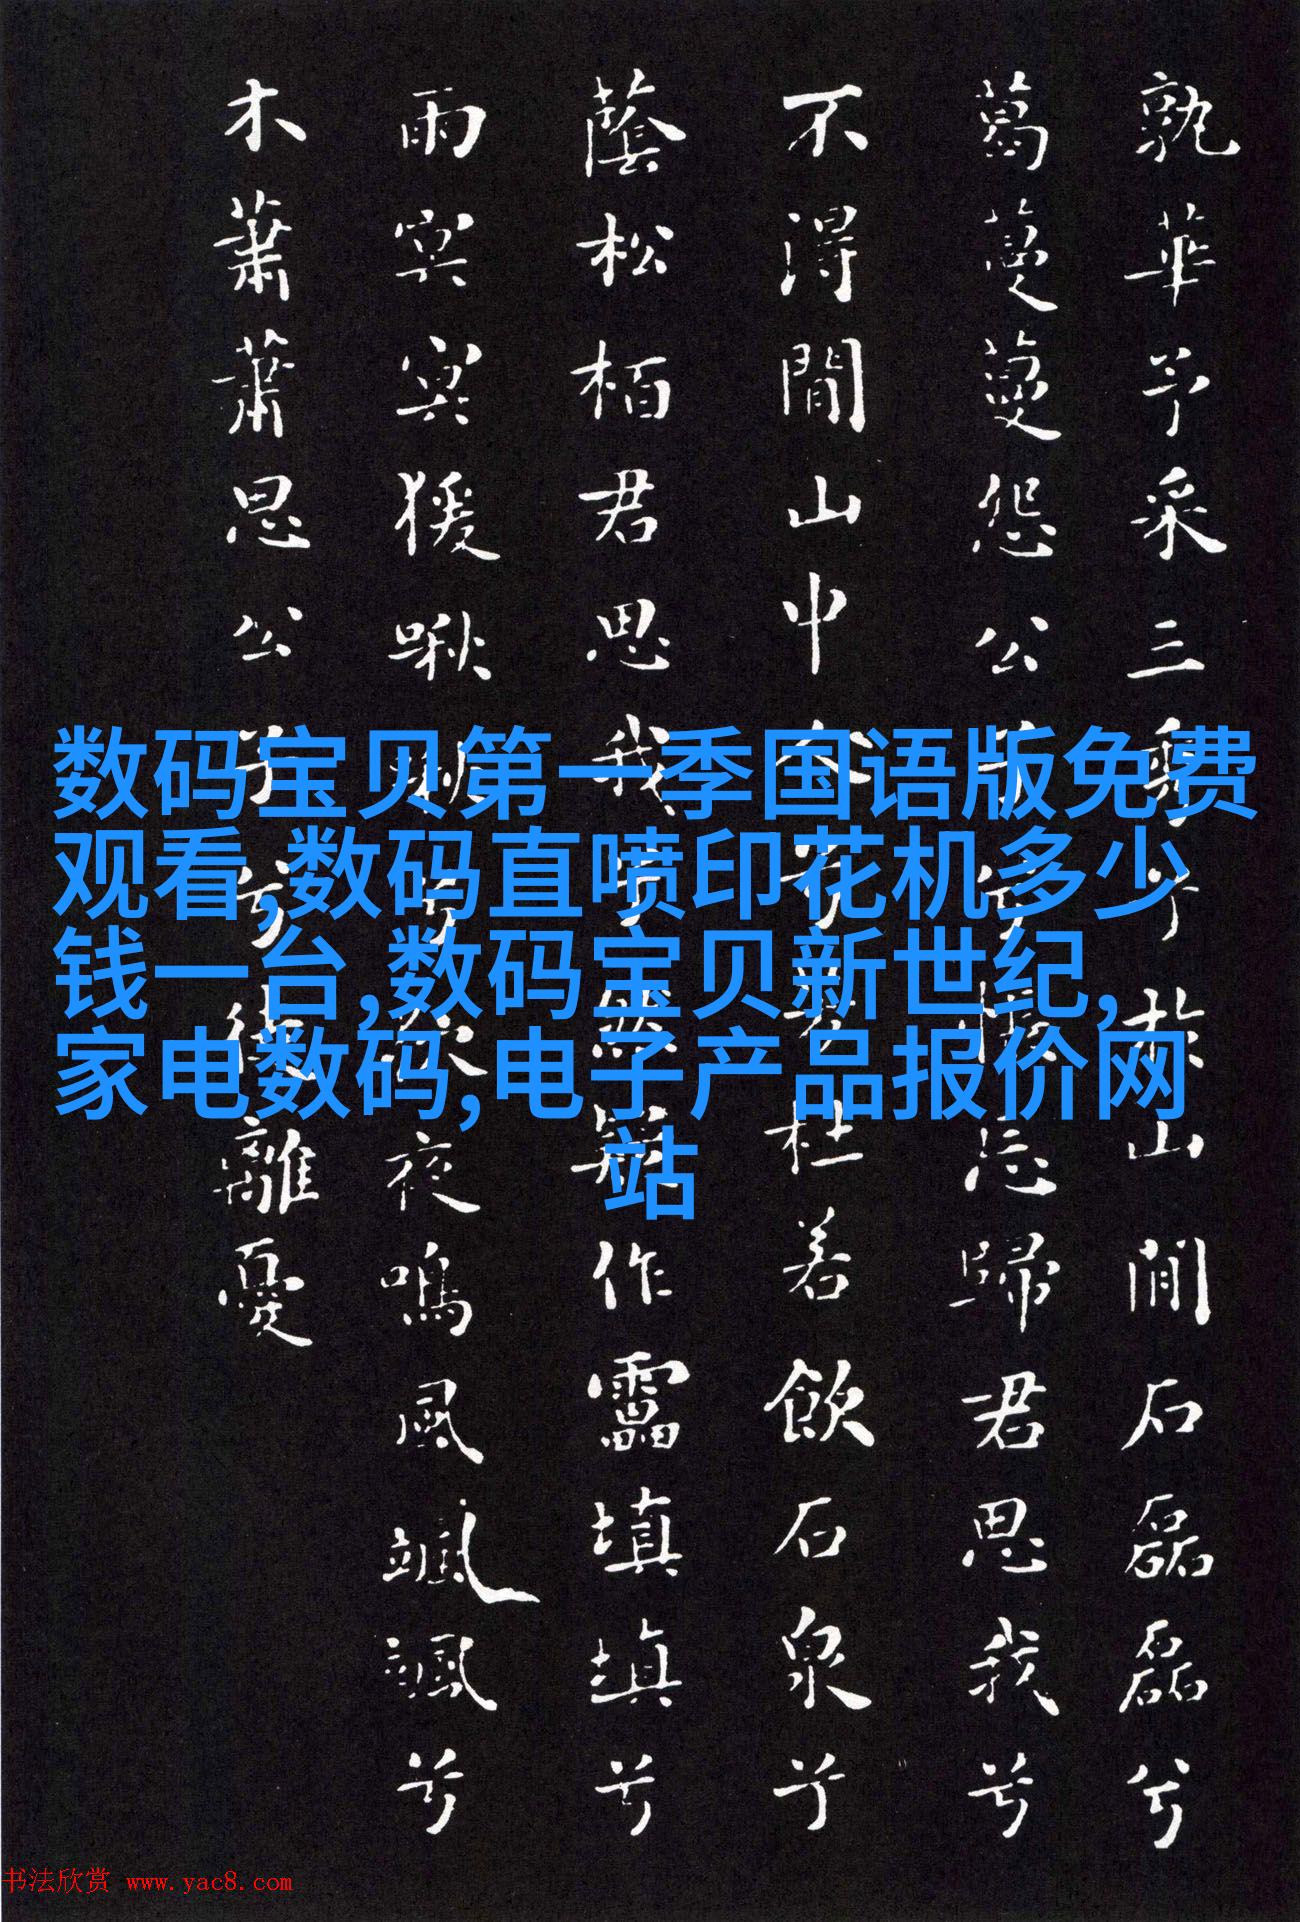 孰華予采三秀兮於山間石磊磊兮
葛蔓蔓怨公子兮悵忘歸君思我兮
不得閒山中人兮芳杜若飲石泉兮
蔭松栢君思我兮然疑作靁填填兮
雨冥冥猨啾啾兮夜鳴風颯颯兮
木蕭蕭思公子兮徒離憂
数码宝贝第一季国语版免费
观看,数码直喷印花机多少
钱一台,数码宝贝新世纪,
家电数码,电子产品报价网
站
书法欣赏 www.yac8.com